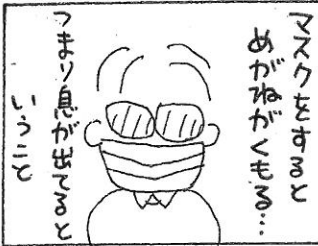 マスクをすると
めがねがくもる…
つまり息が出てると
いうこと